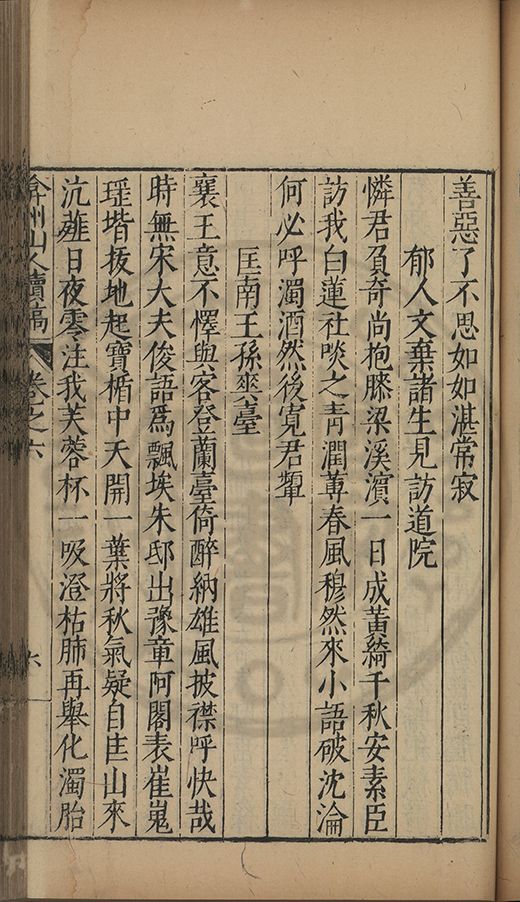 善惡了不思如如湛常寂
郁人文棄諸生見訪道院
憐君負奇尚抱膝梁溪濱一日成黃綺千秋安素臣
訪我白蓮社啖之青澗蓴春風穆然來小語破沈淪
何必呼濁酒然後寬君顰
匡南王孫爽臺
襄王意不懌與客登蘭臺倚醉納雄風披襟呼快哉
時無宋大夫俊語為飄埃朱邸出豫章阿閣表崔嵬
瑶堦拔地起寶楯中天開一葉將秋氣疑自匡山來
沆瀣日夜零注我芙蓉杯一吸澄枯肺再舉化濁胎
弇州山人續稿 卷之六 六